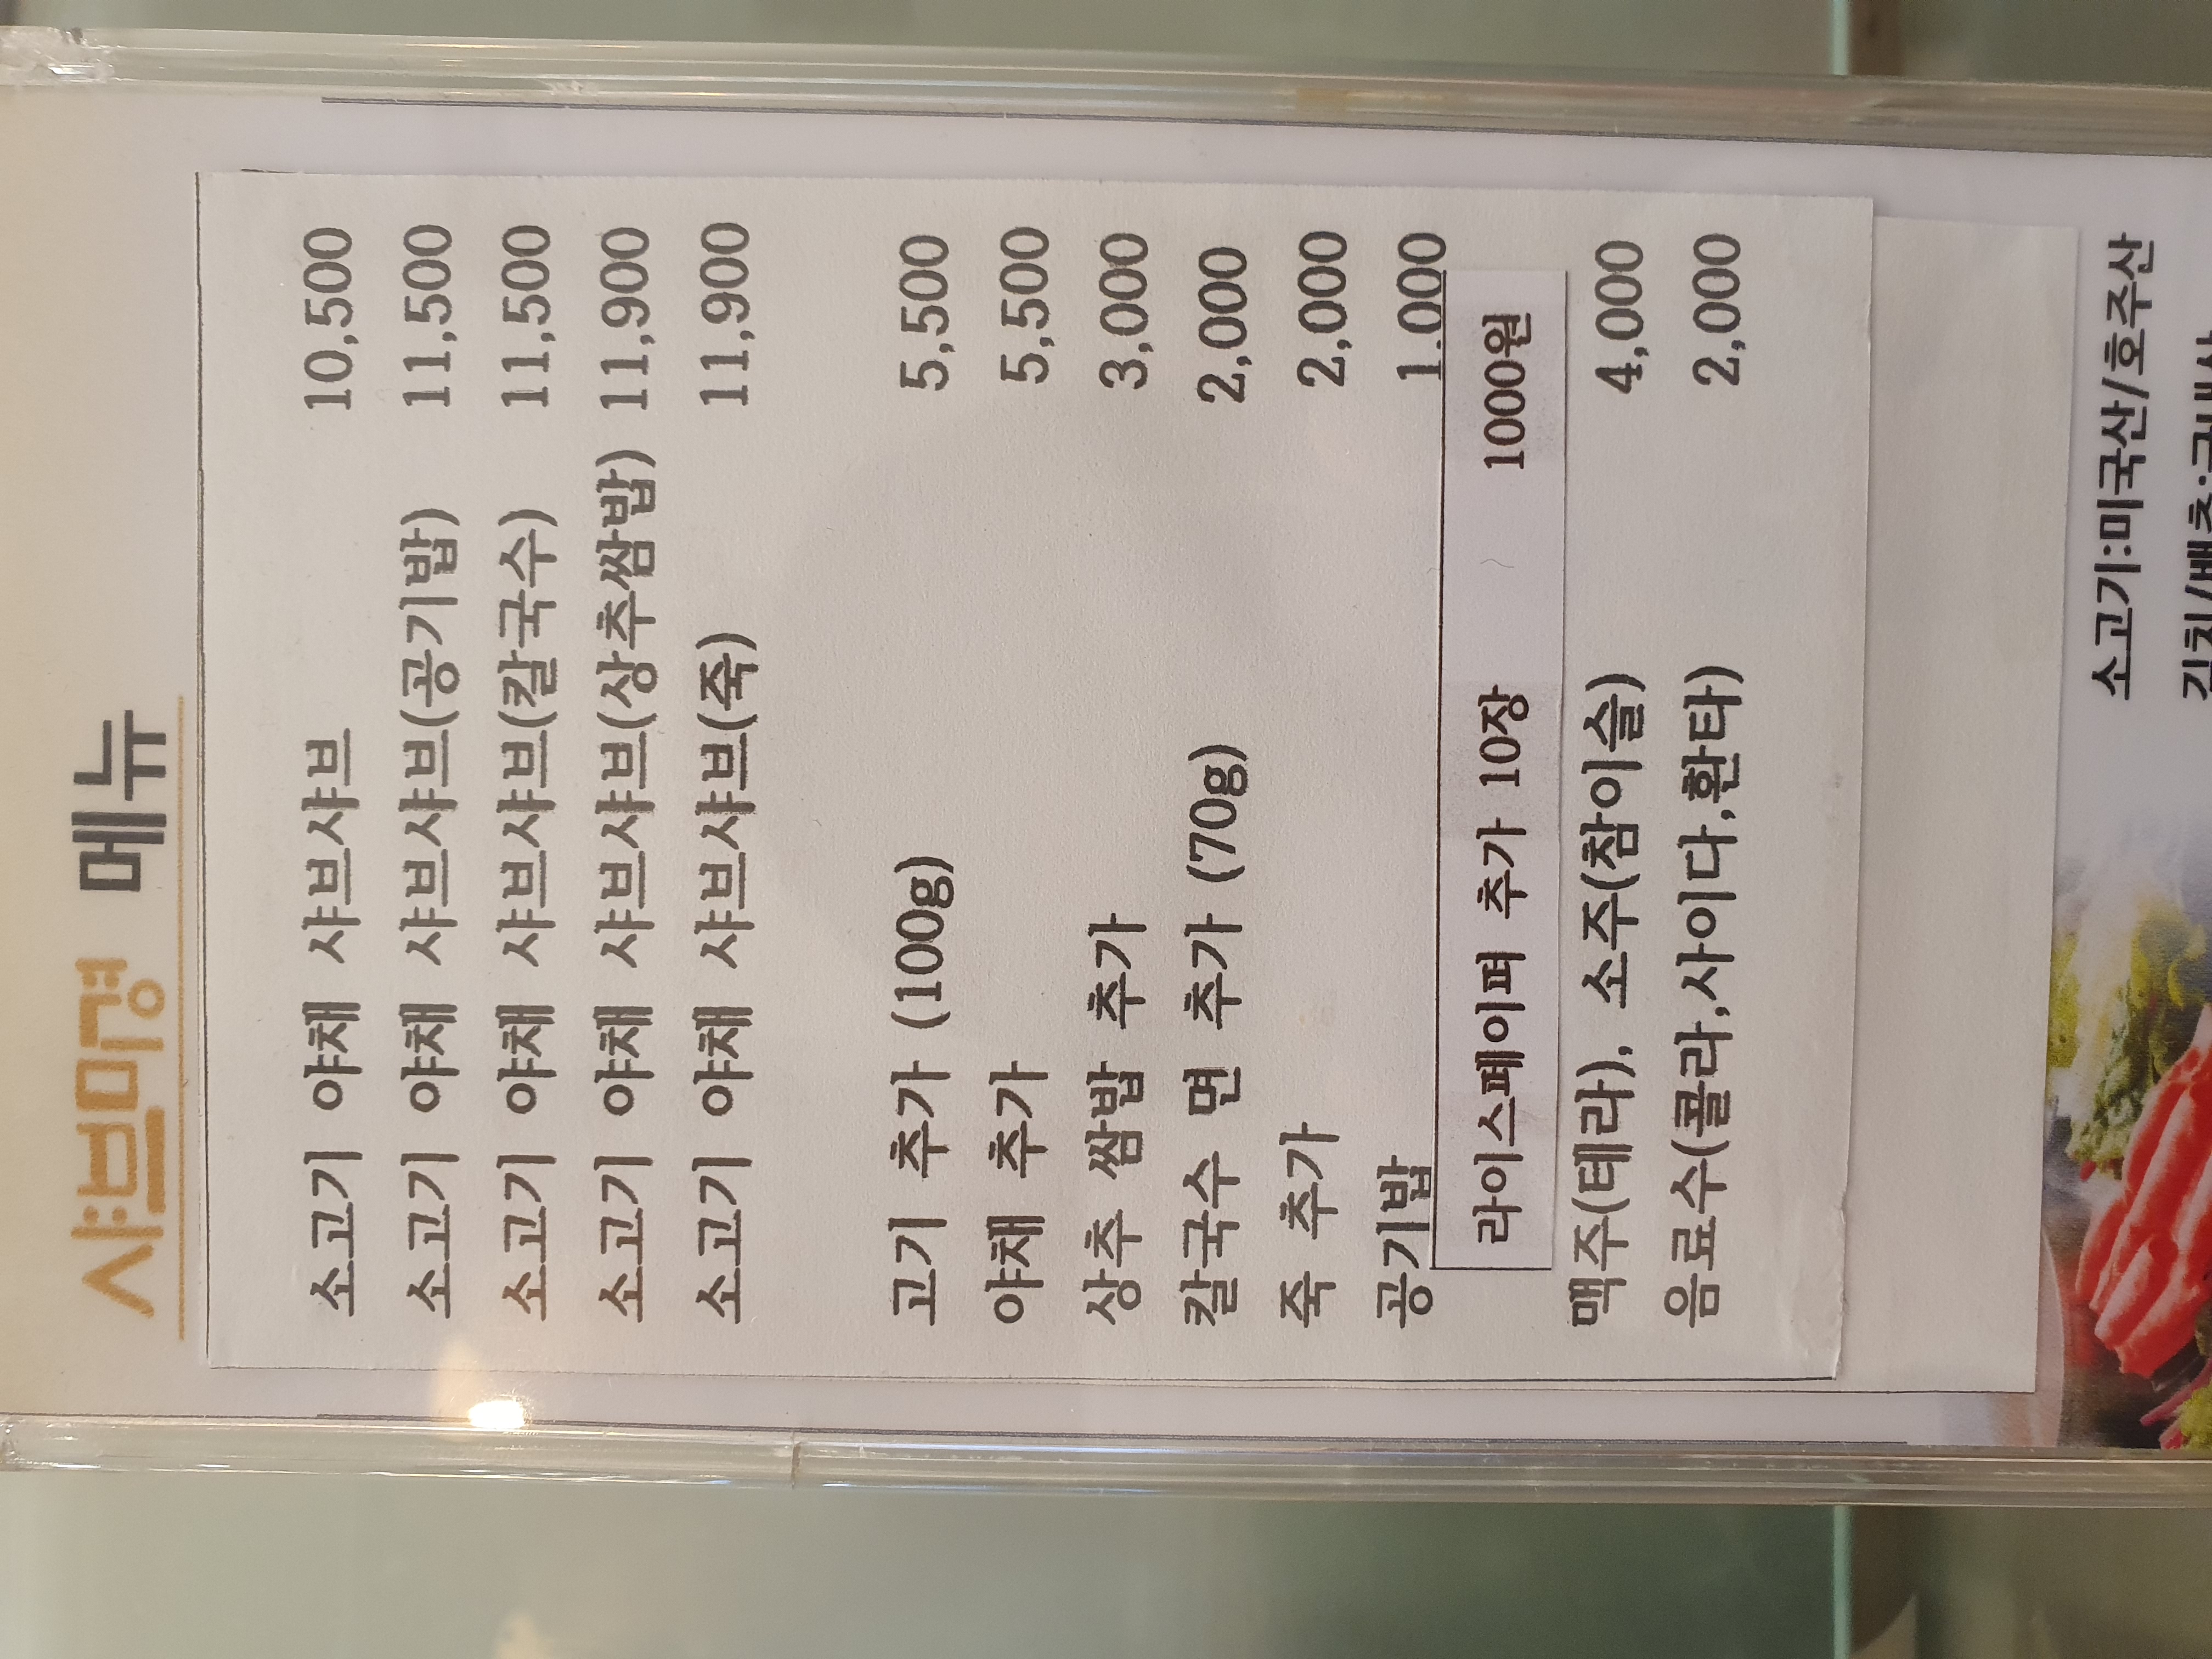 샤브미경 메뉴
소고기 야채 샤브샤브 10,500
소고기 야채 샤브샤브(공기밥) 11,500
소고기 야채 샤브샤브(칼국수) 11,500
소고기 야채 샤브샤브(상추쌈밥) 11,900
소고기 야채 샤브샤브(죽) 11,900
고기 추가 (100g) 5,500
야채 추가 5,500
상추 쌈밥 추가 3,000
칼국수 면 추가 (70g) 2,000
죽 추가 2,000
공기밥 1.000
라이스페이퍼 추가 10장 1000원
맥주(테라), 소주(참이슬) 4,000
음료수(콜라,사이다,환타) 2,000
소고기:미국산/호주산